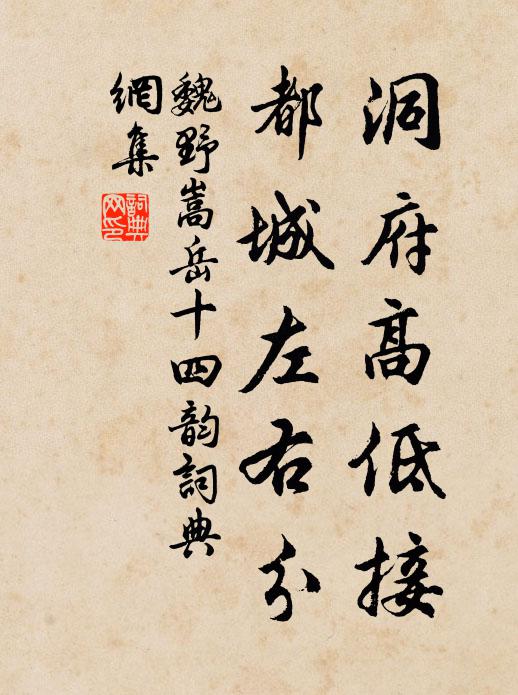 洞府高低接
都城左右分
魏野嵩岳十四韵詞典
網集
詞典网印